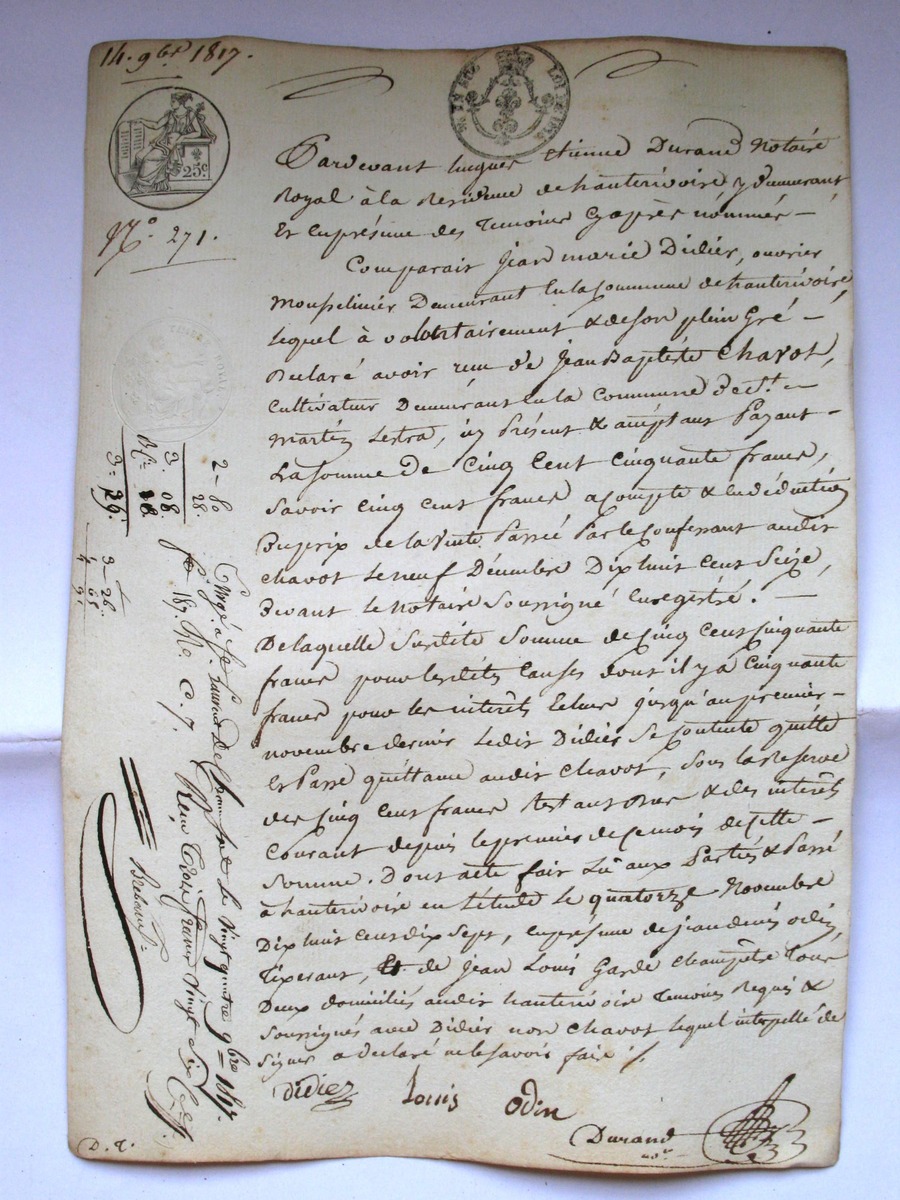 14. 9bre 1817.
25c
N.° 271.
TIMBRE ROYAL
Pardevant hugues Etienne Durand Notaire
Royal à la Residence de hauterivoire y demeurant
Et en présence des temoins cy après nommés —
Comparait Jean marie Didier, ouvrier
Mousselinier Demeurant en la commune de hauterivoire
lequel à volontairement & de son plein Gré —
Déclaré avoir reçu de Jean Baptiste Chavot,
Cultivateur Demeurant en la Commune de St. —
Martin Lestra, icy Présent & acceptant Payant —
La somme de Cinq Cent Cinquante francs,
Savoir Cinq Cent francs acompte & en déduction
Du prix de la vente Passée Par le Confessant audit
Chavot le neuf Décembre Dix huit Cent Seize,
Devant le Notaire Soussigné Enregistré. —
De laquelle Susdite Somme de Cinq Cent Cinquante
francs pour les dites Causes dont il y a Cinquante
francs pour les intérêts Echus jusqu'au premier —
novembre dernier ledit Didier Se Contente quitte
Et Passe quittance audit Chavot, Sous la Reserve
des Cinq Cent francs Restant Dus & des intérêts
Courant depuis le premier de ce mois de cette —
Somme. Dont acte fait Lu aux Parties & Passé
à hauterivoire en l'étude le quatorze Novembre
Dix huit Cent dix Sept, en présence de jean denis odin
Tixerant, Et de Jean Louis Garde Champêtre Tous
Deux domiciliés audit hauterivoire Temoins Requis &
Soussignés avec Didier non Chavot lequel interpellé de
Signer a declaré ne le Savoir faire ./.
didiez
Louis
Odin
Durand
nore
2 - 80
28.
3. 08.
3 = 26
65
Enrgé à St. Laurent de Chamousset le Vingt quatre 9bre 1817.
fo. 167. Ro. C. 7. Reçu Trois francs Vingt Six Ces.
D. T.